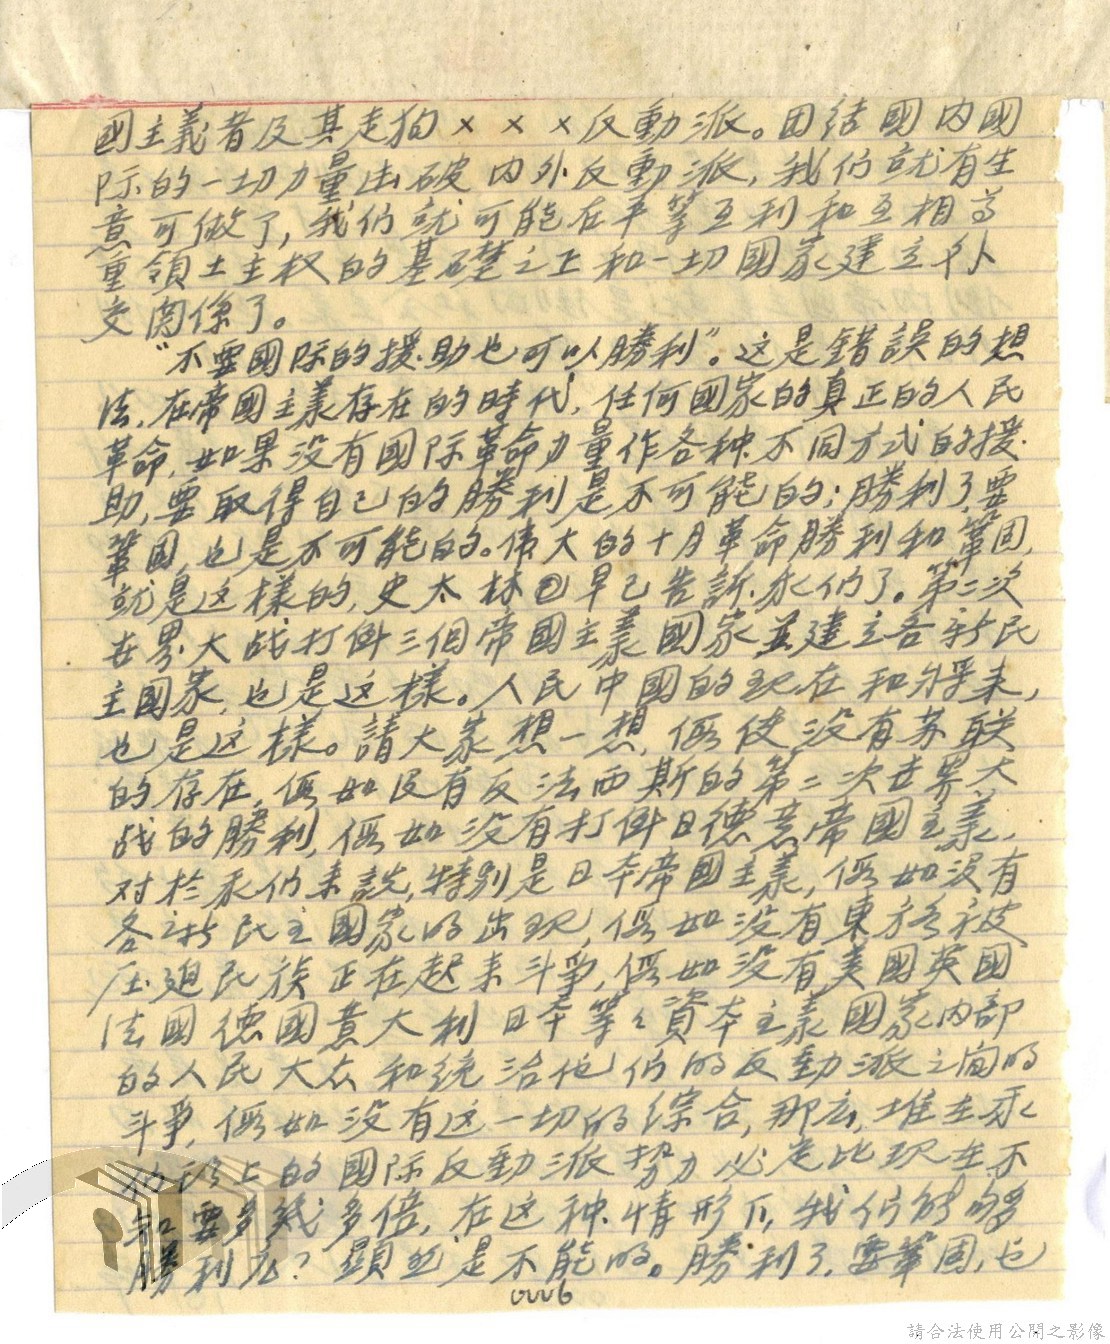 國主義者及其走狗×××反動派。团结國内國
际的一切力量击破内外反動派,我们就有生
意可做了,我们就可能在平等互利和互相尊
重領土主权的基礎之上和一切國家建立外
交関係了。
"不要國际的援助也可以勝利"。这是錯誤的想
法,在帝國主義存在的時代,任何國家的真正的人民
革命,如果没有國际革命力量作各种不同方式的援
助,要取得自己的勝利是不可能的;勝利了要
鞏固,也是不可能的。偉大的十月革命勝利和鞏固,
就是这樣的,史太林早已告訴我们了。第二次
世界大战打倒三個帝國主義國家並建立各新民
主國家,也是这樣。人民中國的现在和将来,
也是这樣。請大家想一想,假使没有苏联
的存在,假如没有反法西斯的第二次世界大
战的勝利,假如没有打倒日德意帝國主義,
对於我们来説,特别是日本帝國主義,假如没有
各新民主國家的出现,假如没有東方各被
压迫民族正在起来斗爭,假如没有美國英國
法國德國意大利日本等々資本主義國家内部
的人民大众和统治他们的反動派之间的
斗爭,假如没有这一切的综合,那么,堆在我
们头上的國际反動派势力必定比现在不
知要多幾多倍,在这种情形下,我们能够
勝利么?顕然是不能的。勝利了,要鞏固,也
0006
請合法使用公開之影像